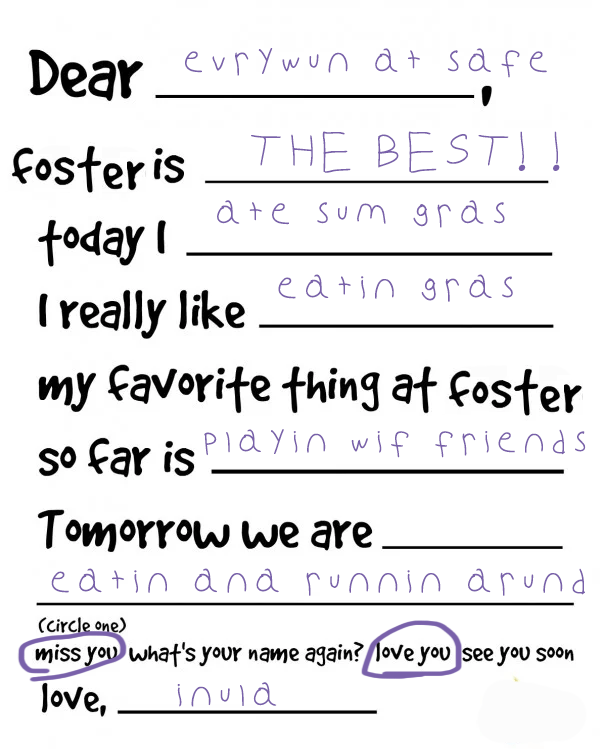 Dear evrywun at safe,
foster is THE BEST!!
today I ate sum gras
I really like eatin gras
my favorite thing at foster
so far is playin wif friends
Tomorrow we are
eatin and runnin arund
(circle one)
miss you what's your name again? love you see you soon
love, inula